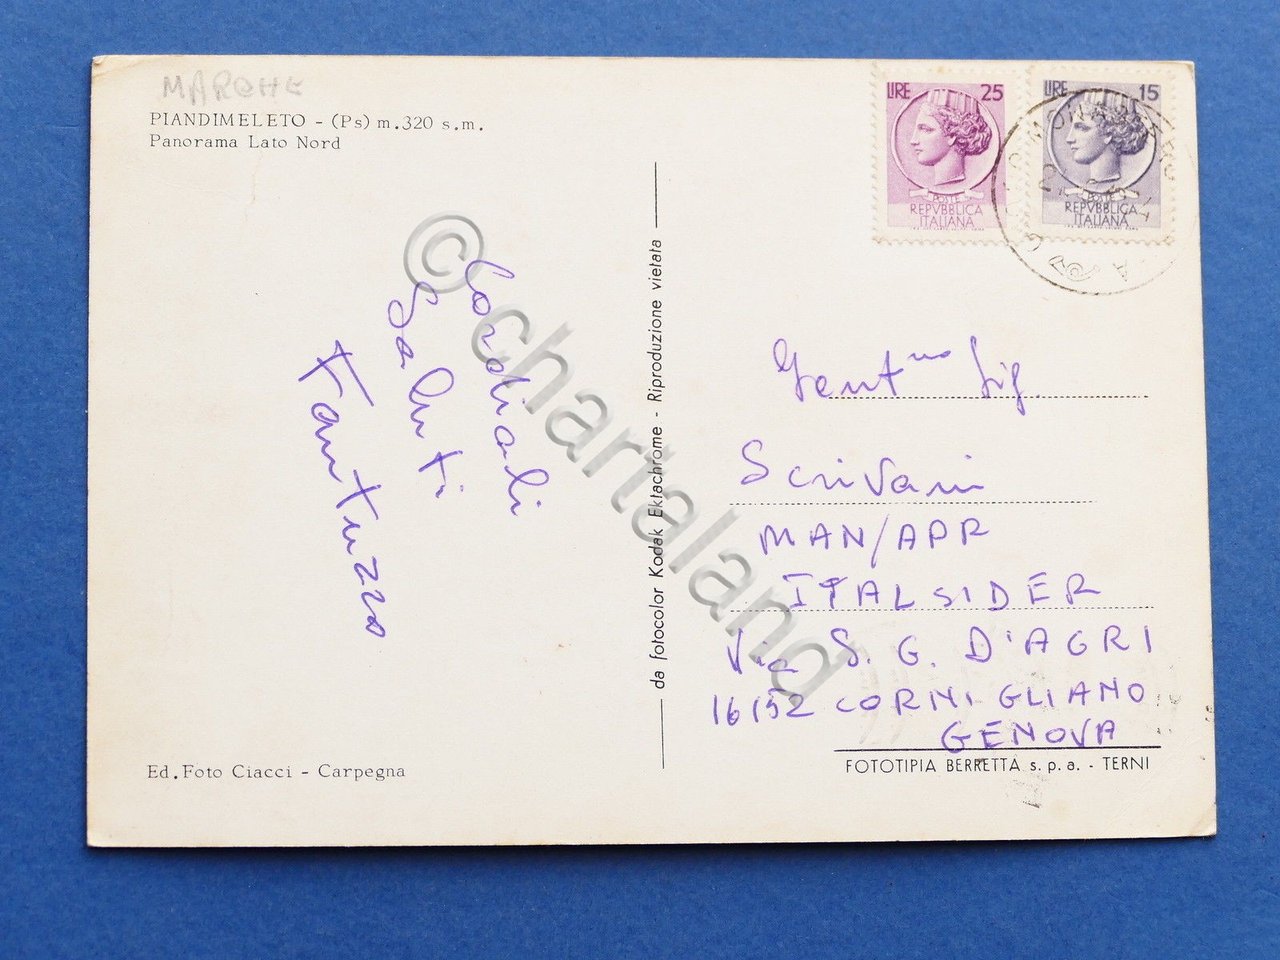 MARCHE
PIANDIMELETO - (Ps) m.320 s.m.
Panorama Lato Nord
LIRE 25
POSTE
REPVBBLICA
ITALIANA
LIRE 15
POSTE
REPVBBLICA
ITALIANA
Cordiali
Saluti
Fantuzzo
da fotocolor Kodak Ektachrome - Riproduzione vietata
Gent.mo Sig.
Scrivani
MAN/APR
ITALSIDER
Via S. G. D'AGRI
16152 CORNIGLIANO
GENOVA
Ed.Foto Ciacci - Carpegna
FOTOTIPIA BERRETTA s.p.a. - TERNI
© chartaland